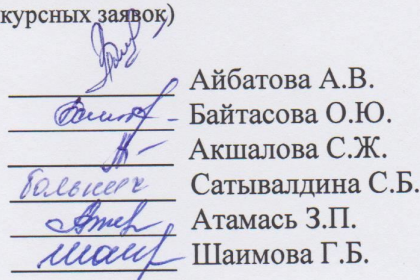 курсных заявок)
Айбатова А.В.
Байтасова О.Ю.
Акшалова С.Ж.
больничн Сатывалдина С.Б.
Атамась З.П.
Шаимова Г.Б.